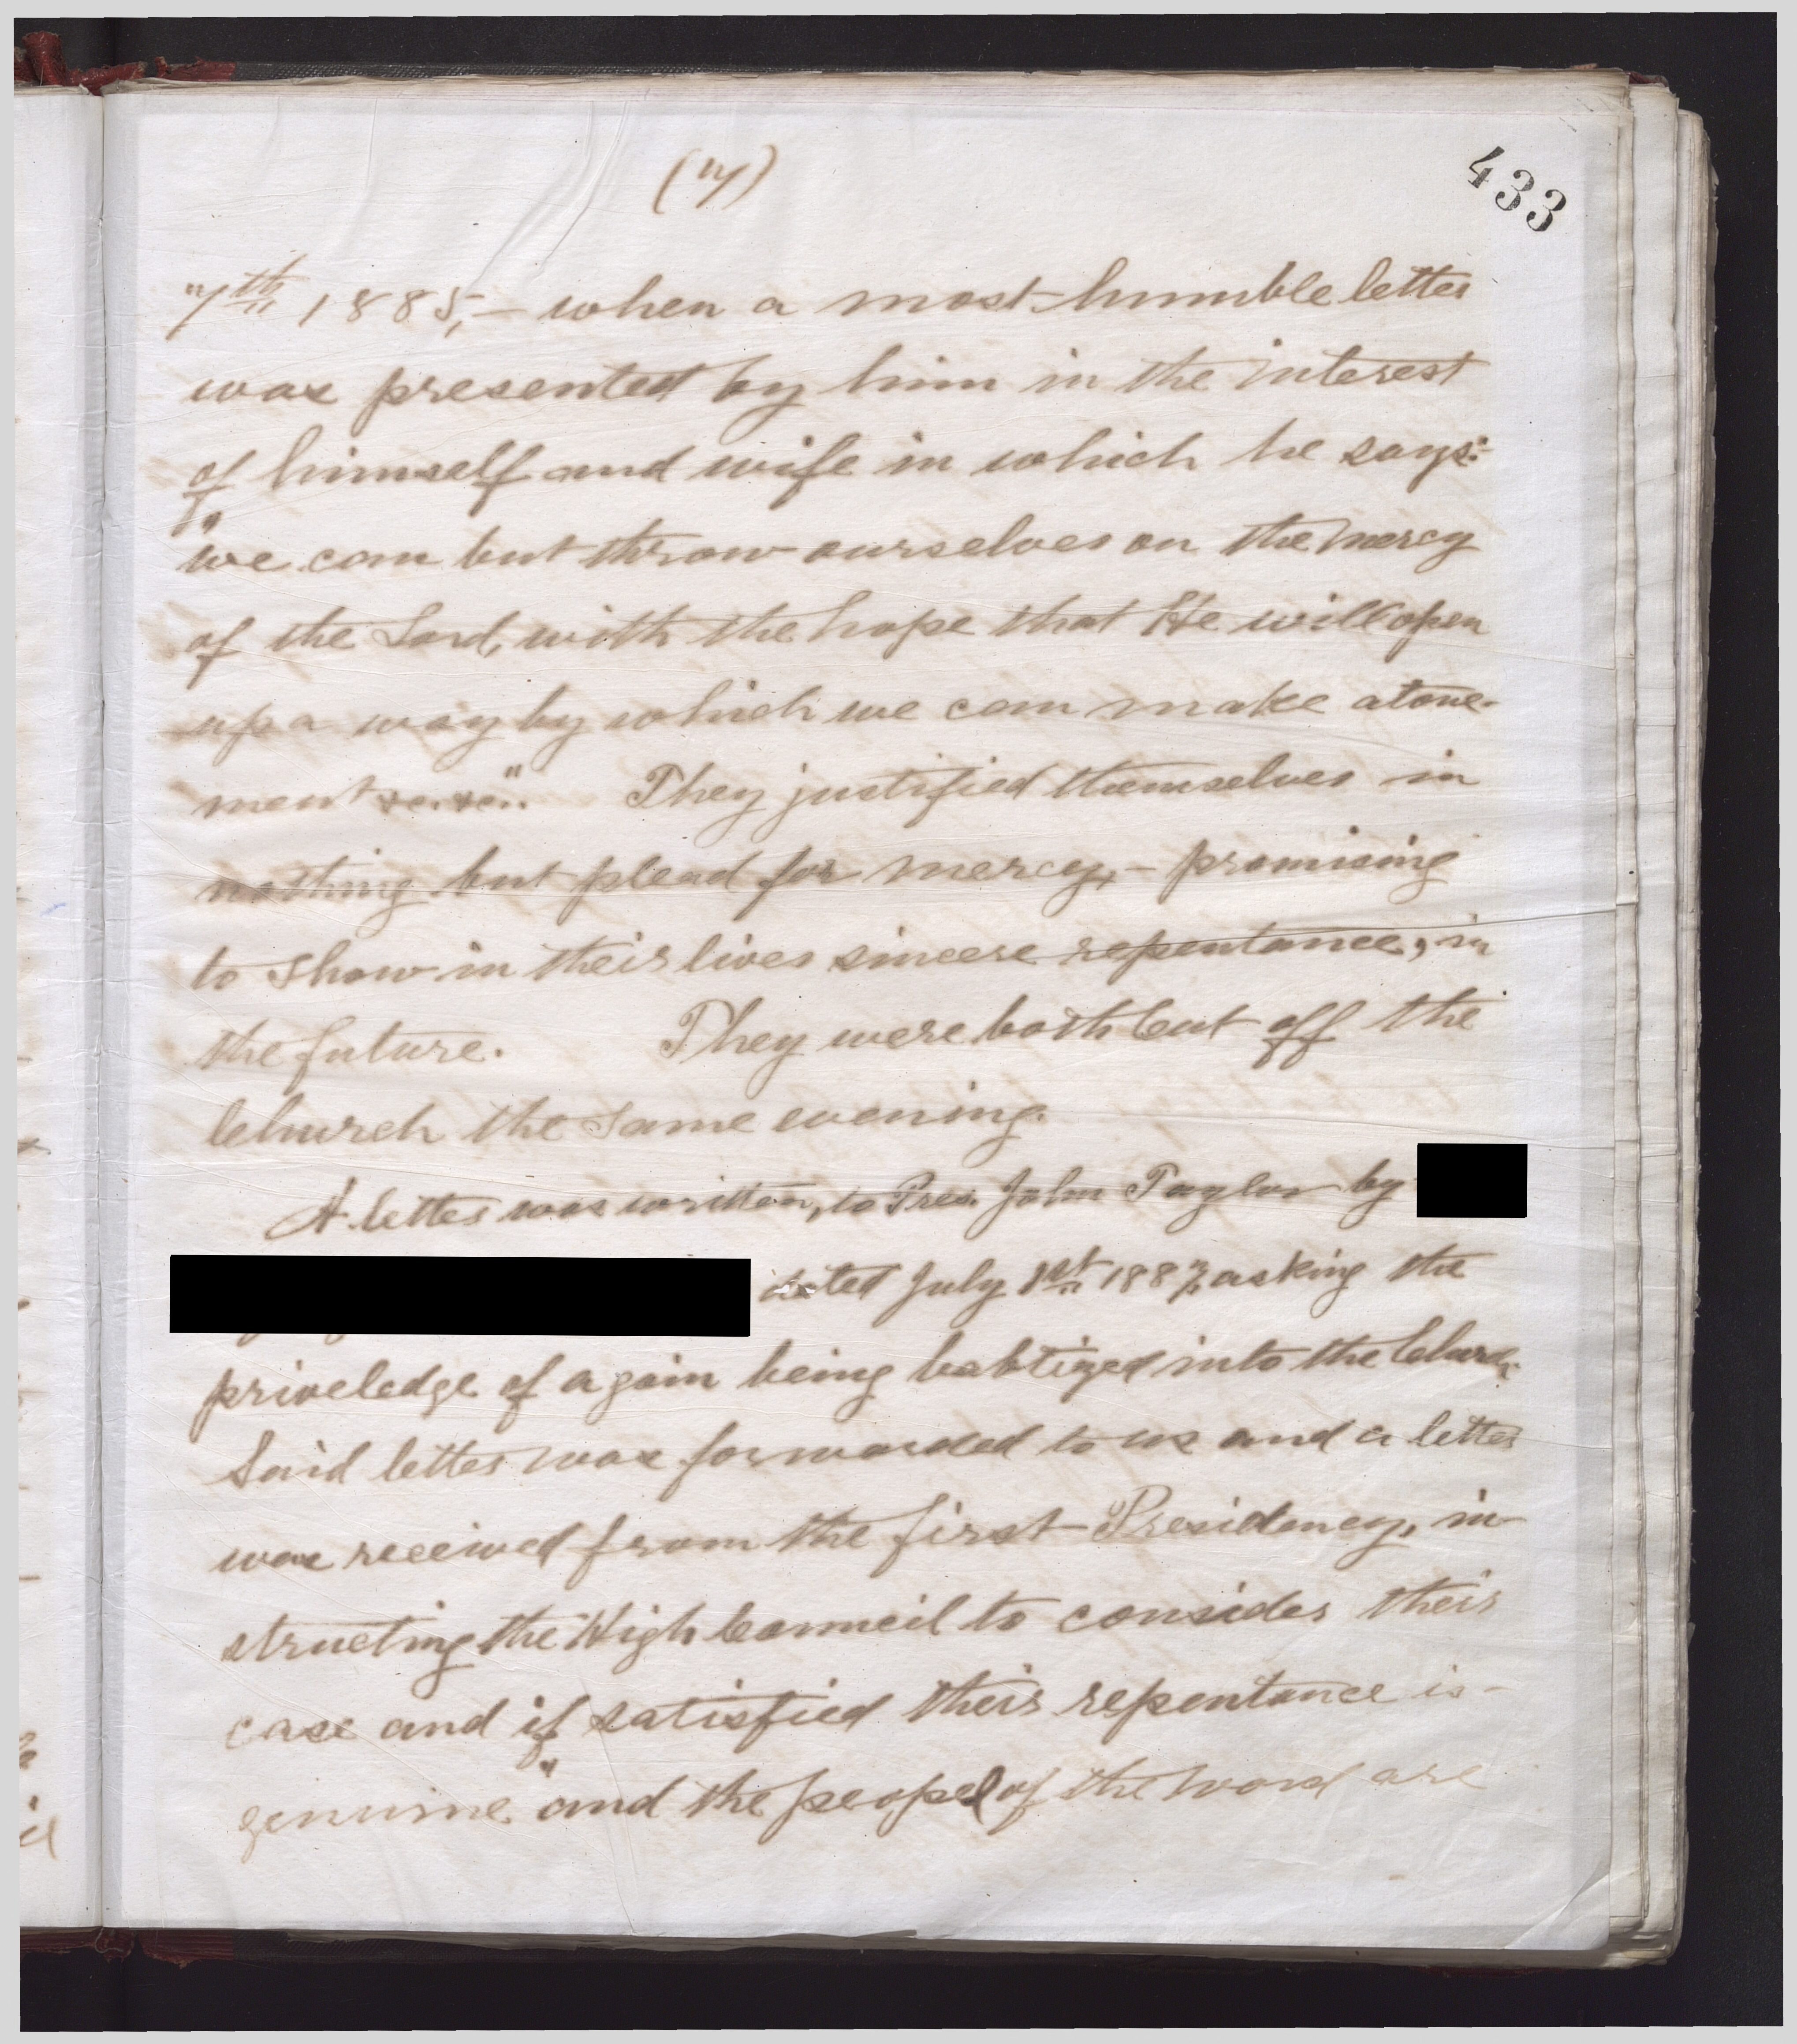 433
(7)
7th 1885,- when a most humble letter
was presented by him in the interest
of himself and wife in which he says:-
"we can but throw ourselves on the mercy
of the Lord, with the hope that He will open
up a way by which we can make atone-
ment &c. &c." They justified themselves in
nothing but plead for mercy,- promising
to show in their lives sincere repentance, in
the future. They were both Cut off the
Church the same evening.
A letter was written, to Pres. John Taylor by
dated July 1st 1887, asking the
priveledge of again being babtized into the Church.
Said letter was forwarded to us and a letter
was received from the first Presidency, in-
structing the High Council to consider their
case and if satisfied their repentance is-
genuine "and the peopel of the ward are